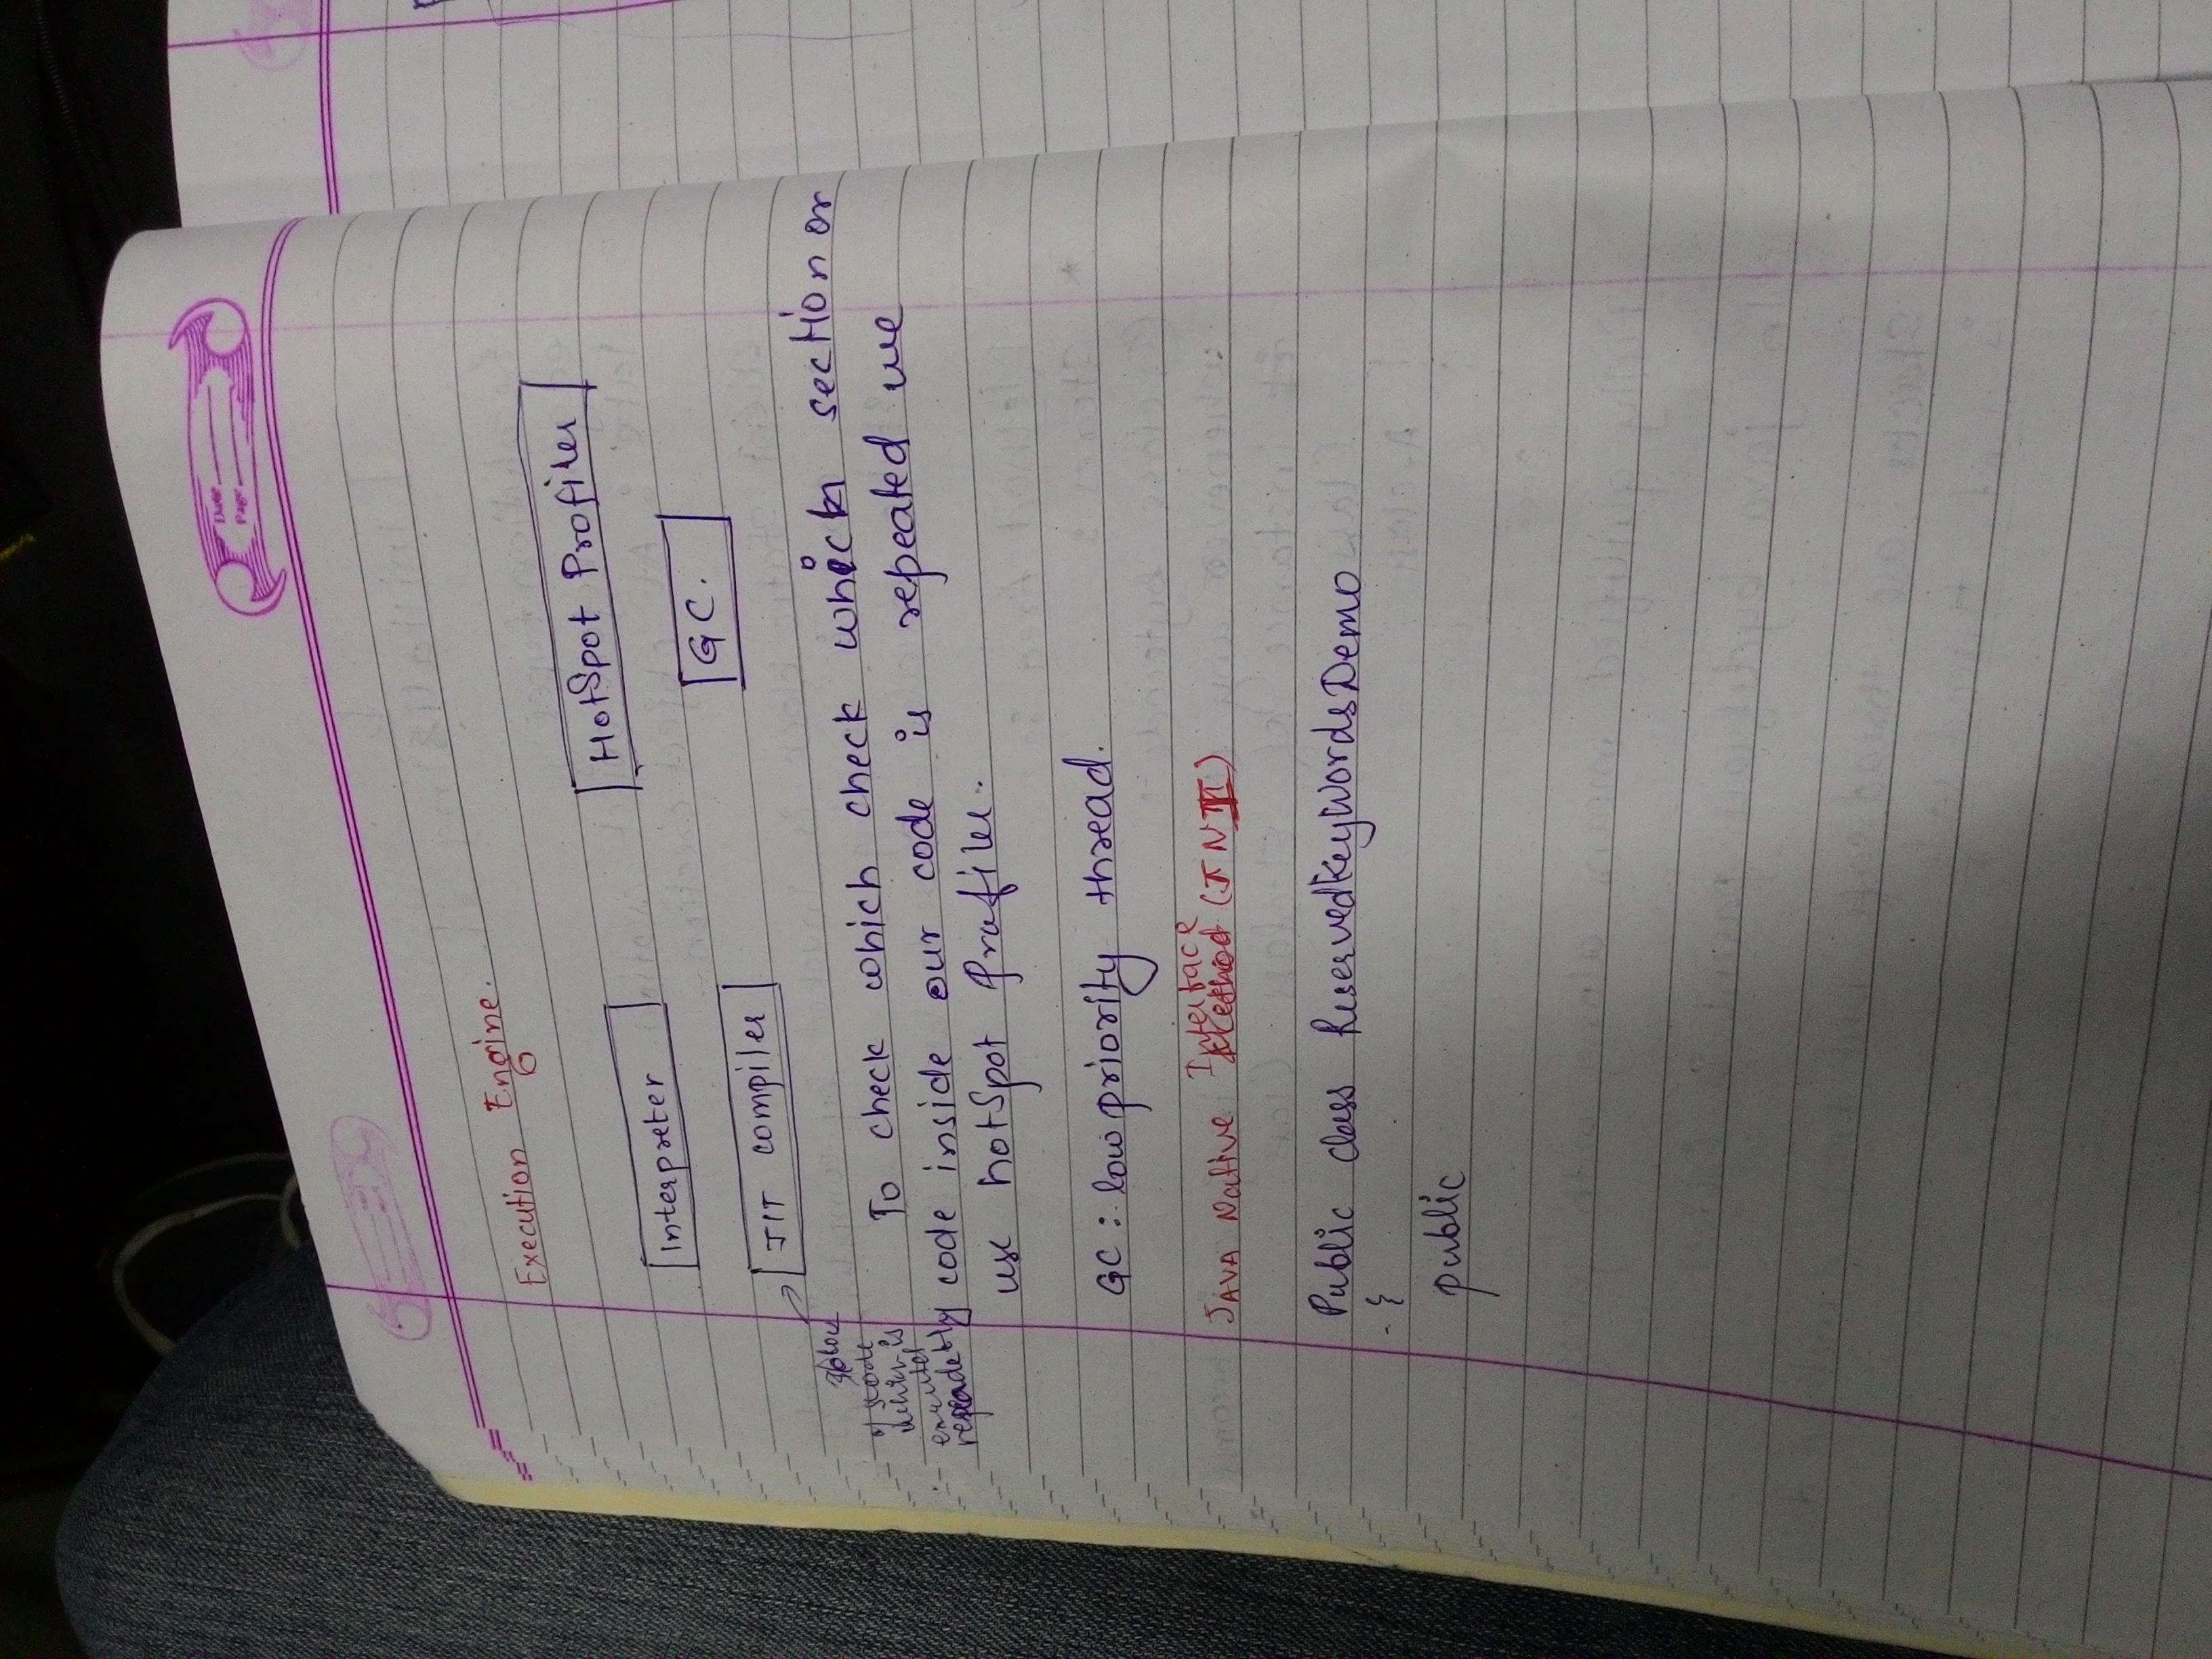 Date
Page
Execution Engine.
HotSpot Profiler
Interpreter
GC.
JIT compiler
of code
which is
repeadetly
To check which check which section or
code inside our code is repeated we
use hotSpot Profiler.
GC : low priority thread.
Interface
JAVA Native Method (JNI)
Public class ReservedKeyWordsDemo
{
public